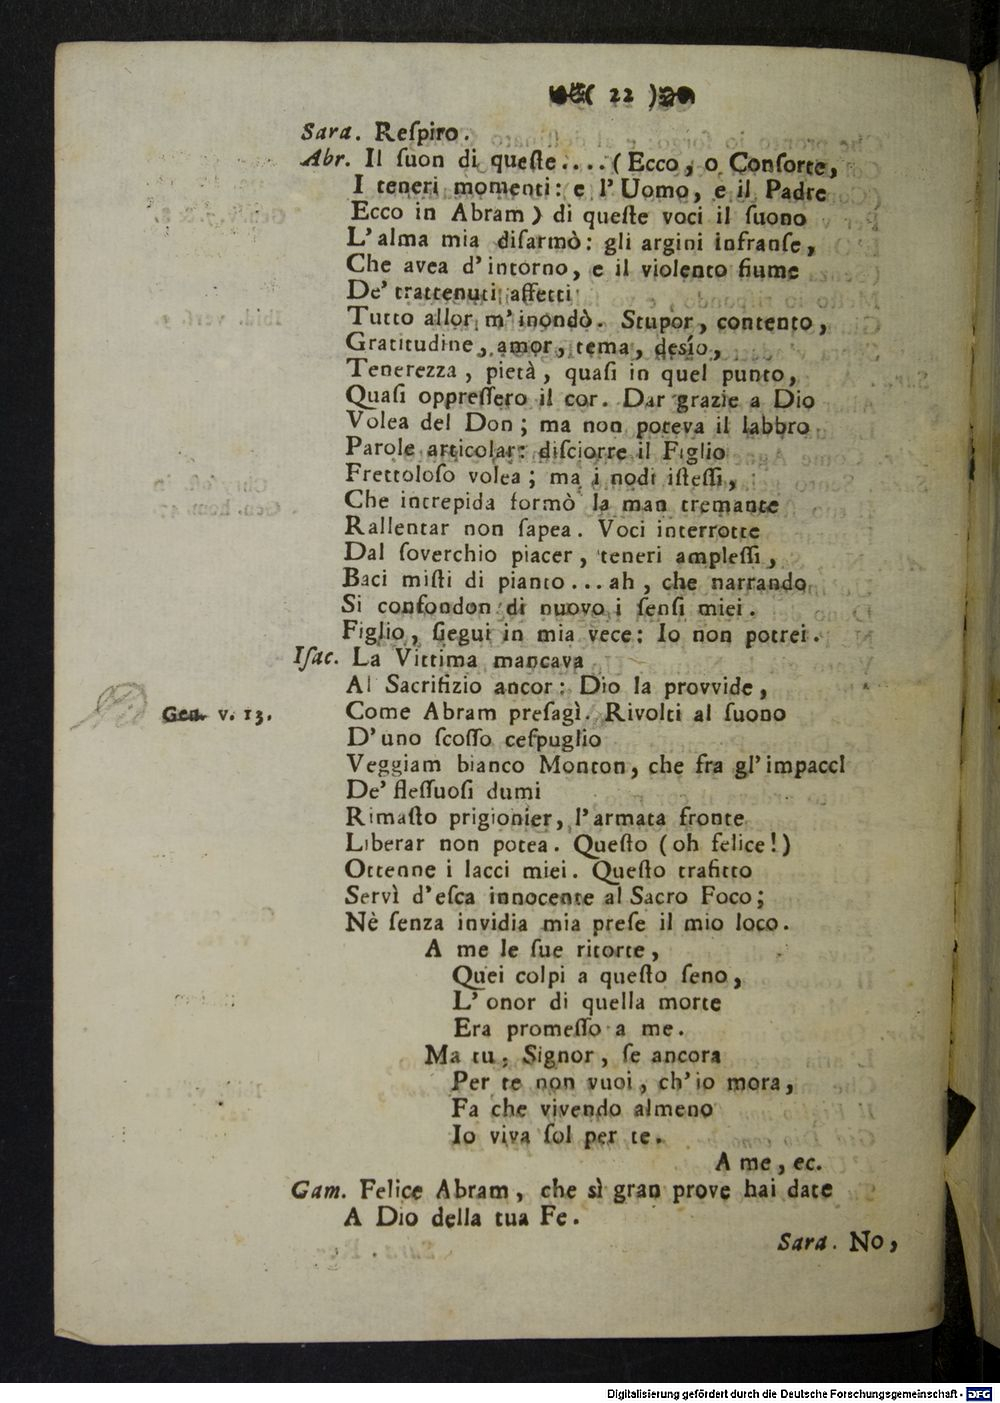 ( 22 )
Sara. Reſpiro.
Abr. Il ſuon di queſte....(Ecco, o Conſorte,
I teneri momenti: e l'Uomo, e il Padre
Ecco in Abram) di queſte voci il ſuono
L'alma mia diſarmò: gli argini infranſe,
Che avea d'intorno, e il violento fiume
De' trattenuti affetti
Tutto allor m'inondò. Stupor, contento,
Gratitudine, amor, tema, desío,
Tenerezza, pietà, quaſi in quel punto,
Quaſi oppreſſero il cor. Dar grazie a Dio
Volea del Don; ma non poteva il labbro
Parole articolar: diſciorre il Figlio
Frettoloſo volea; ma i nodi iſteſſi,
Che intrepida formò la man tremante
Rallentar non ſapea. Voci interrotte
Dal ſoverchio piacer, teneri ampleſſi,
Baci miſti di pianto...ah, che narrando
Si confondon di nuovo i ſenſi miei.
Figlio, ſiegui in mia vece: Io non potrei.
Iſac. La Vittima mancava
Al Sacrifizio ancor: Dio la provvide,
Gen. v. 13. Come Abram preſagì. Rivolti al ſuono
D'uno ſcoſſo ceſpuglio
Veggiam bianco Monton, che fra gl'impacci
De' fleſſuoſi dumi
Rimaſto prigionier, l'armata fronte
Liberar non potea. Queſto (oh felice!)
Ottenne i lacci miei. Queſto trafitto
Servì d'eſca innocente al Sacro Foco;
Nè ſenza invidia mia preſe il mio loco.
A me le ſue ritorte,
Quei colpi a queſto ſeno,
L'onor di quella morte
Era promeſſo a me.
Ma tu, Signor, ſe ancora
Per te non vuoi, ch'io mora,
Fa che vivendo almeno
Io viva ſol per te.
A me, ec.
Gam. Felice Abram, che sì gran prove hai date
A Dio della tua Fe.
Sara. No,
Digitalisierung gefördert durch die Deutsche Forschungsgemeinschaft - DFG